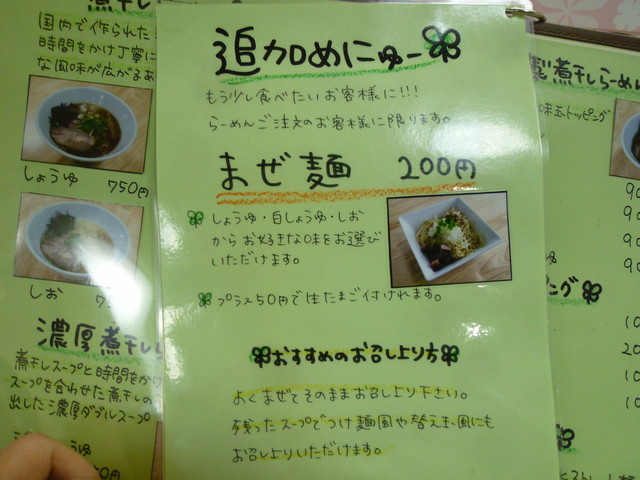 煮干し
国内で作られた
時間をかけ丁寧に
な風味が広がるあ
しょうゆ 750円
しお
濃厚煮干し
煮干しスープと時間をかけ
スープを合わせた煮干しの
出した濃厚ダブルスープ
追加めにゅー
もう少し食べたいお客様に!!!
らーめんご注文のお客様に限ります。
まぜ麺 200円
しょうゆ・白しょうゆ・しお
からお好きな味をお選び
いただけます。
プラス50円で生たまご付けれます。
おすすめのお召し上り方
よくまぜてそのままお召し上り下さい。
残ったスープでつけ麺風や替え玉風にも
お召し上りいただけます。
煮干しらーめん
味玉トッピング